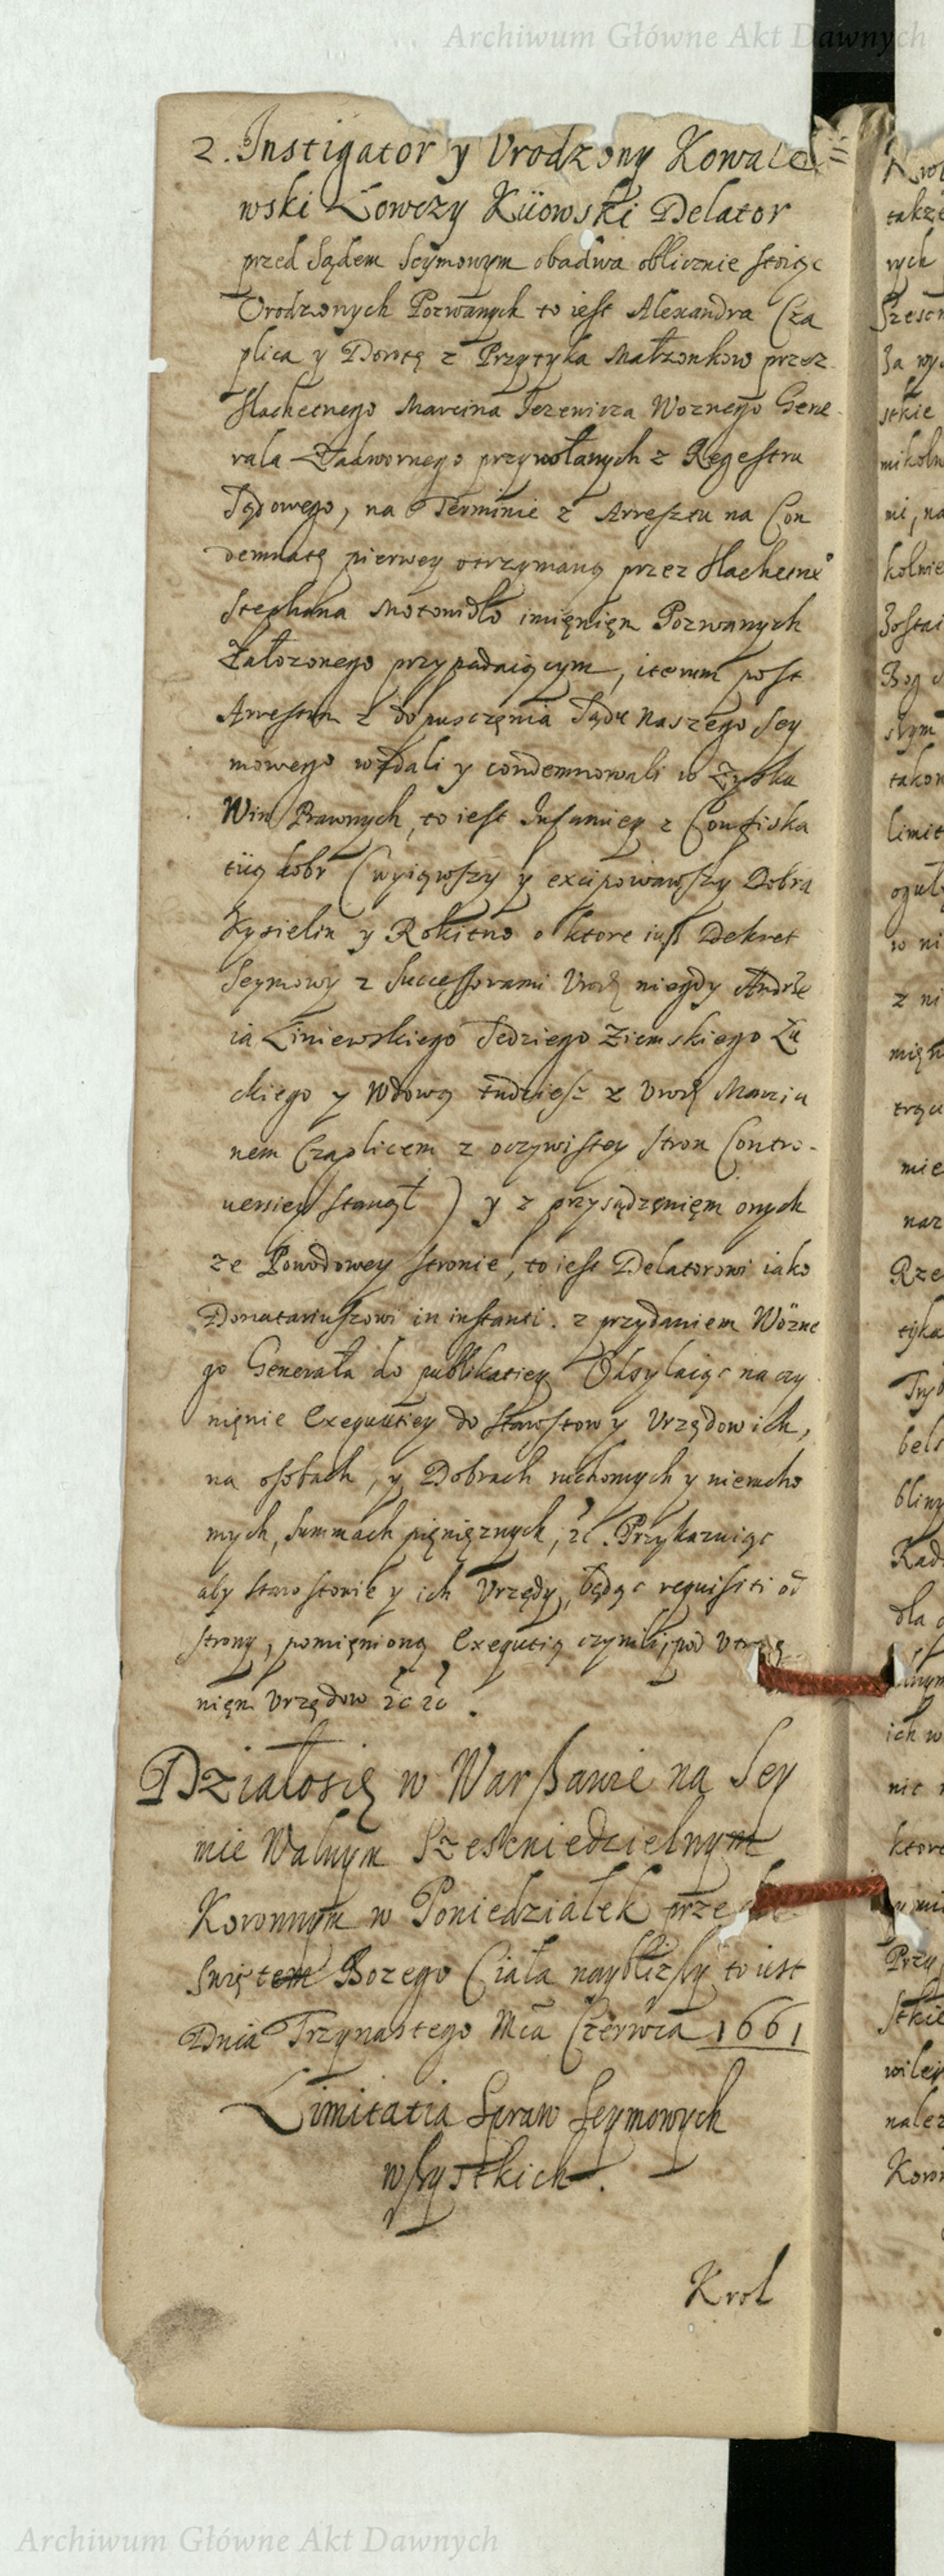 Archiwum Główne Akt Dawnych
2. Instigator y Urodzony Kowale
wski Łowczy Kiiowski Delator
przed Sądem Seymowym obadwa oblicznie stoiąc
Urodzonych Pozwanych to iest Alexandra Cza
plica y Dorotę z Przytyka Małzonkow przez
Slachetnego Marcina Jezewicza Woznego Gene
rala Nadwornego przywołanych z Regestru
Sądowego, na Terminie z Arresztu na Con
demnatę pierwey otrzymaną przez Slachetne°
Stephana Motowidło imięnięm Pozwanych
Załozonego przypadaiącym, iterum post
Arrestum z dopusczęnia Sądu Naszego Sey
mowego wzdali y condemnowali w Zysku
Win Prawnych, to iest Infamiey z Confiska
tią dobr (wyiąwszy y excipowawszy Dobra
Kysielin y Rokitno o ktore iusz Dekret
Seymowy z Successorami Urodz niegdy Andrze
ia Liniewskiego Sedziego Ziemskiego Łu
ckiego y Wdową tudziesz z Urodz Marciu
nem Czaplicem z oczywistey stron Contro-
uersiey stanął) y z przysądzęnięm onych
ze Powodowey stronie, to iest Delatorowi iako
Donatariuszowi in instanti. z przydaniem Wozne
go Generała do publikatiey Odsylaiąc na czy
nięnie Exequutiey do Starostow y Urzędow ich,
na osobach, y Dobrach ruchomych y nierucho
mych, summach pięnięznych, &c. Przykazuiąc
aby Starostowie y ich Urzędy, będąc requisiti od
strony, pomięnioną Exequtią czynili, pod
nięm Urzędow &c &c.
Działosię w Warszawie na Sey
mie Walnym Szescniedzielnym
Koronnym w Poniedziałek przed
Swiętem Bozego Ciała nayblizszy to iest
Dnia Trzynastego Mca Czerwca 1661
Limitatia Spraw Seymowych
wszystkich.
Krol
Archiwum Główne Akt Dawnych